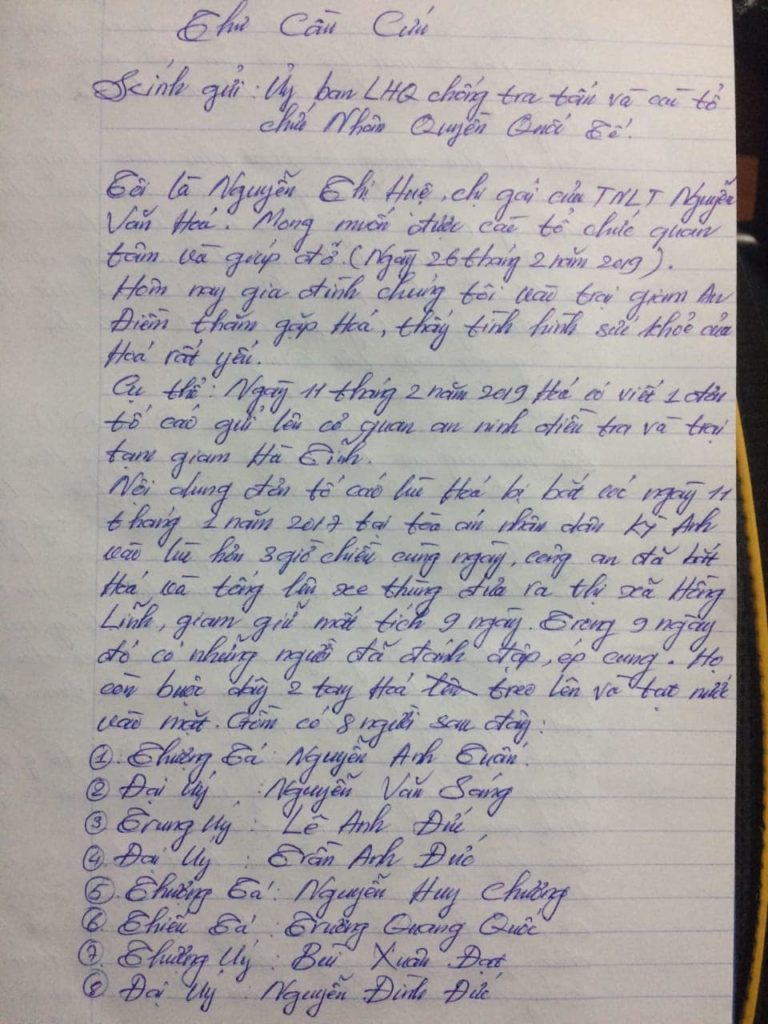 Thư Cầu Cứu
Kính gửi: Uỷ ban LHQ chống tra tấn và các tổ
chức Nhân Quyền Quốc Tế.
Tôi là Nguyễn Thị Huệ, chị gái của TNLT Nguyễn
Văn Hoá. Mong muốn được các tổ chức quan
tâm và giúp đỡ. (Ngày 26 tháng 2 năm 2019).
Hôm nay gia đình chúng tôi vào trại giam An
Điềm thăm gặp Hoá, thấy tình hình sức khoẻ của
Hoá rất yếu.
Cụ thể: Ngày 11 tháng 2 năm 2019 Hoá có viết 1 đơn
tố cáo gửi lên cơ quan an ninh điều tra và trại
tạm giam Hà Tĩnh.
Nội dung đơn tố cáo lúc Hoá bị bắt cóc ngày 11
tháng 1 năm 2017 tại toà án nhân dân Kỳ Anh
vào lúc hơn 3 giờ chiều cùng ngày, công an đã bắt
Hoá và tống lên xe thùng đưa ra thị xã Hồng
Lĩnh, giam giữ mất tích 9 ngày. Trong 9 ngày
đó có những người đã đánh đập, ép cung. Họ
còn buộc dây 2 tay Hoá treo lên và tạt nước
vào mặt. Gồm có 8 người sau đây:
① Thượng Tá Nguyễn Anh Tuấn.
② Đại Uý : Nguyễn Văn Sáng
③ Trung Uý : Lê Anh Đức
④ Đại Uý : Trần Anh Đức
⑤ Thượng Tá: Nguyễn Huy Chương
⑥ Thiếu Tá : Trương Quang Quốc
⑦ Thượng Uý : Bùi Xuân Đạt
⑧ Đại Uý : Nguyễn Đình Đức